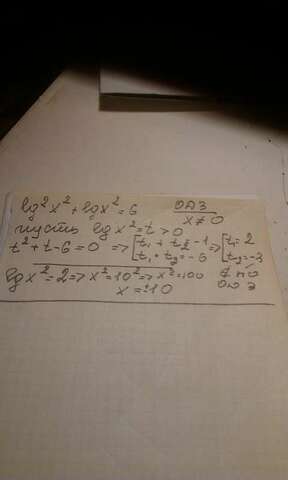 lg²x² + lgx² = 6 ОДЗ
x ≠ 0
пусть lgx² = t > 0
t² + t - 6 = 0 => [t₁ + t₂ = -1 => [t₁ = 2
t₁ · t₂ = -6 t₂ = -3
lgx² = 2 => x² = 10² => x² = 100 ∉ по
x = ±10 ОДЗ